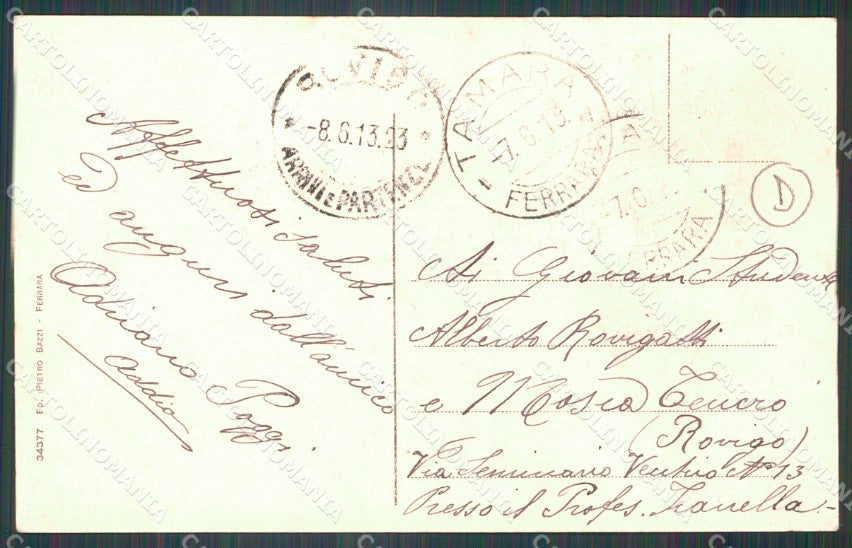 ROVIGO
-8.6.13.23
ARRIVI E PARTENZE
TAMARA
-7.6.13
FERRARA
-7.6.
FERRARA
D
Affettuosi saluti
ed auguri dall'amico
Adriano Poggi
addio
Ai Giovani Studenti
Alberto Rovigatti
e Mosca Cenero
(Rovigo)
Via Seminario Vecchio No 13
Presso il Profes. Zanella.-
34377 ED. PIETRO BAZZI - FERRARA
CARTOLINOMANIA